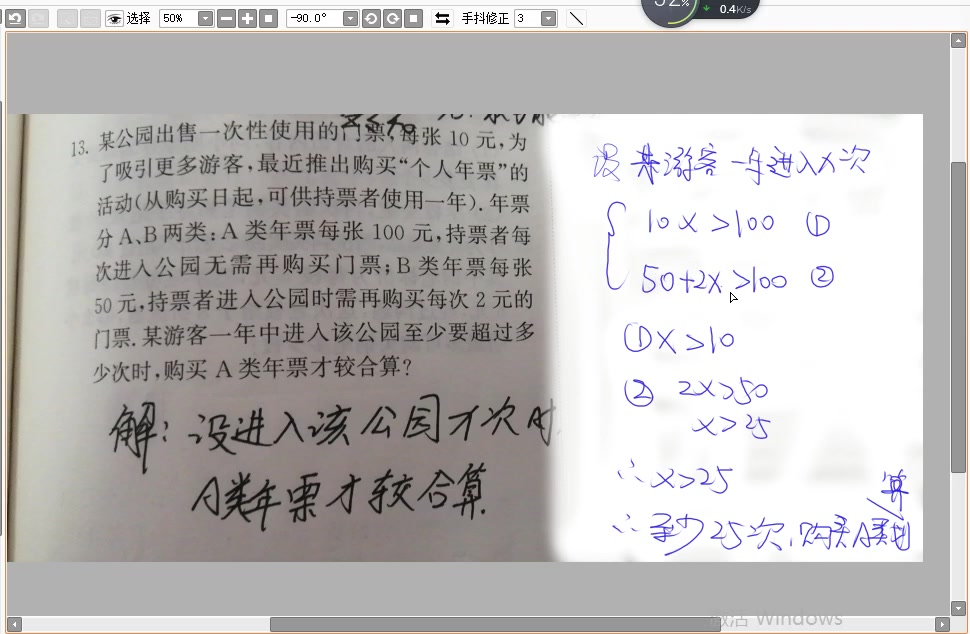 选择
50%
-90.0°
手抖修正
3
52%
0.4K/s
13. 某公园出售一次性使用的门票,每张 10 元,为
了吸引更多游客,最近推出购买“个人年票”的
活动(从购买日起,可供持票者使用一年). 年票
分 A、B 两类:A 类年票每张 100 元,持票者每
次进入公园无需再购买门票;B 类年票每张
50 元,持票者进入公园时需再购买每次 2 元的
门票. 某游客一年中进入该公园至少要超过多
少次时,购买 A 类年票才较合算?
解:设进入该公园x次时
A类年票才较合算.
设某游客一年进入x次
10x>100 ①
50+2x>100 ②
①x>10
② 2x>50
x>25
∴x>25
算
∴至少25次,购买A类划
激活 Windows